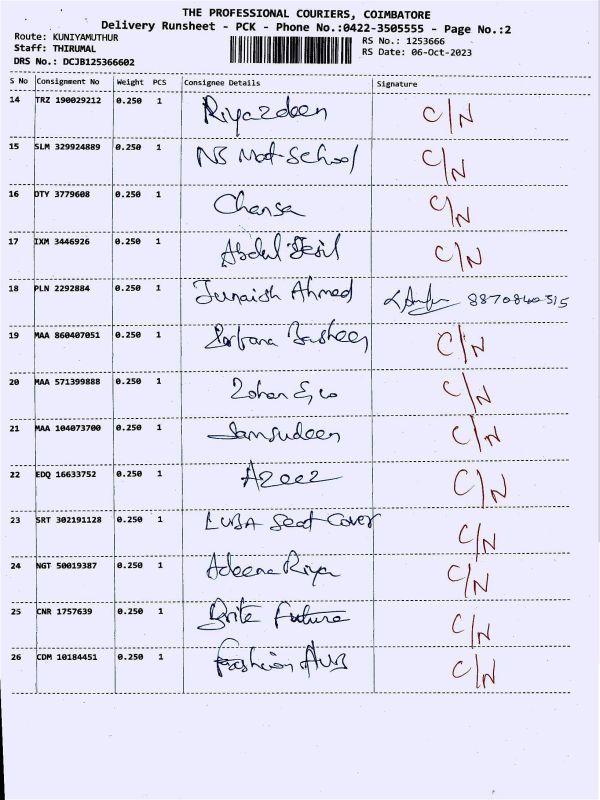 THE PROFESSIONAL COURIERS, COIMBATORE
Delivery Runsheet - PCK - Phone No.:0422-3505555 - Page No.:2
Route: KUNIYAMUTHUR
Staff: THIRUMAL
DRS No.: DCJB125366602
RS No.: 1253666
RS Date: 06-Oct-2023
S No Consignment No Weight PCS Consignee Details Signature
14 TRZ 190029212 0.250 1 Riyazdeen C/N
15 SLM 329924889 0.250 1 NS Mat-School C/N
16 DTY 3779608 0.250 1 C/N
17 IXM 3446926 0.250 1 Abdul C/N
18 PLN 2292884 0.250 1 Junaish Ahmed 8870840515
19 MAA 860407051 0.250 1 C/N
20 MAA 571399888 0.250 1 Zohan & co C/N
21 MAA 104073700 0.250 1 Samsudeen C/N
22 EDQ 16633752 0.250 1 Azeez C/N
23 SRT 302191128 0.250 1 LUBA Seat Cover C/N
24 NGT 50019387 0.250 1 Adeena Riya C/N
25 CNR 1757639 0.250 1 Brite Future C/N
26 CDM 10184451 0.250 1 Fashion Hub C/N